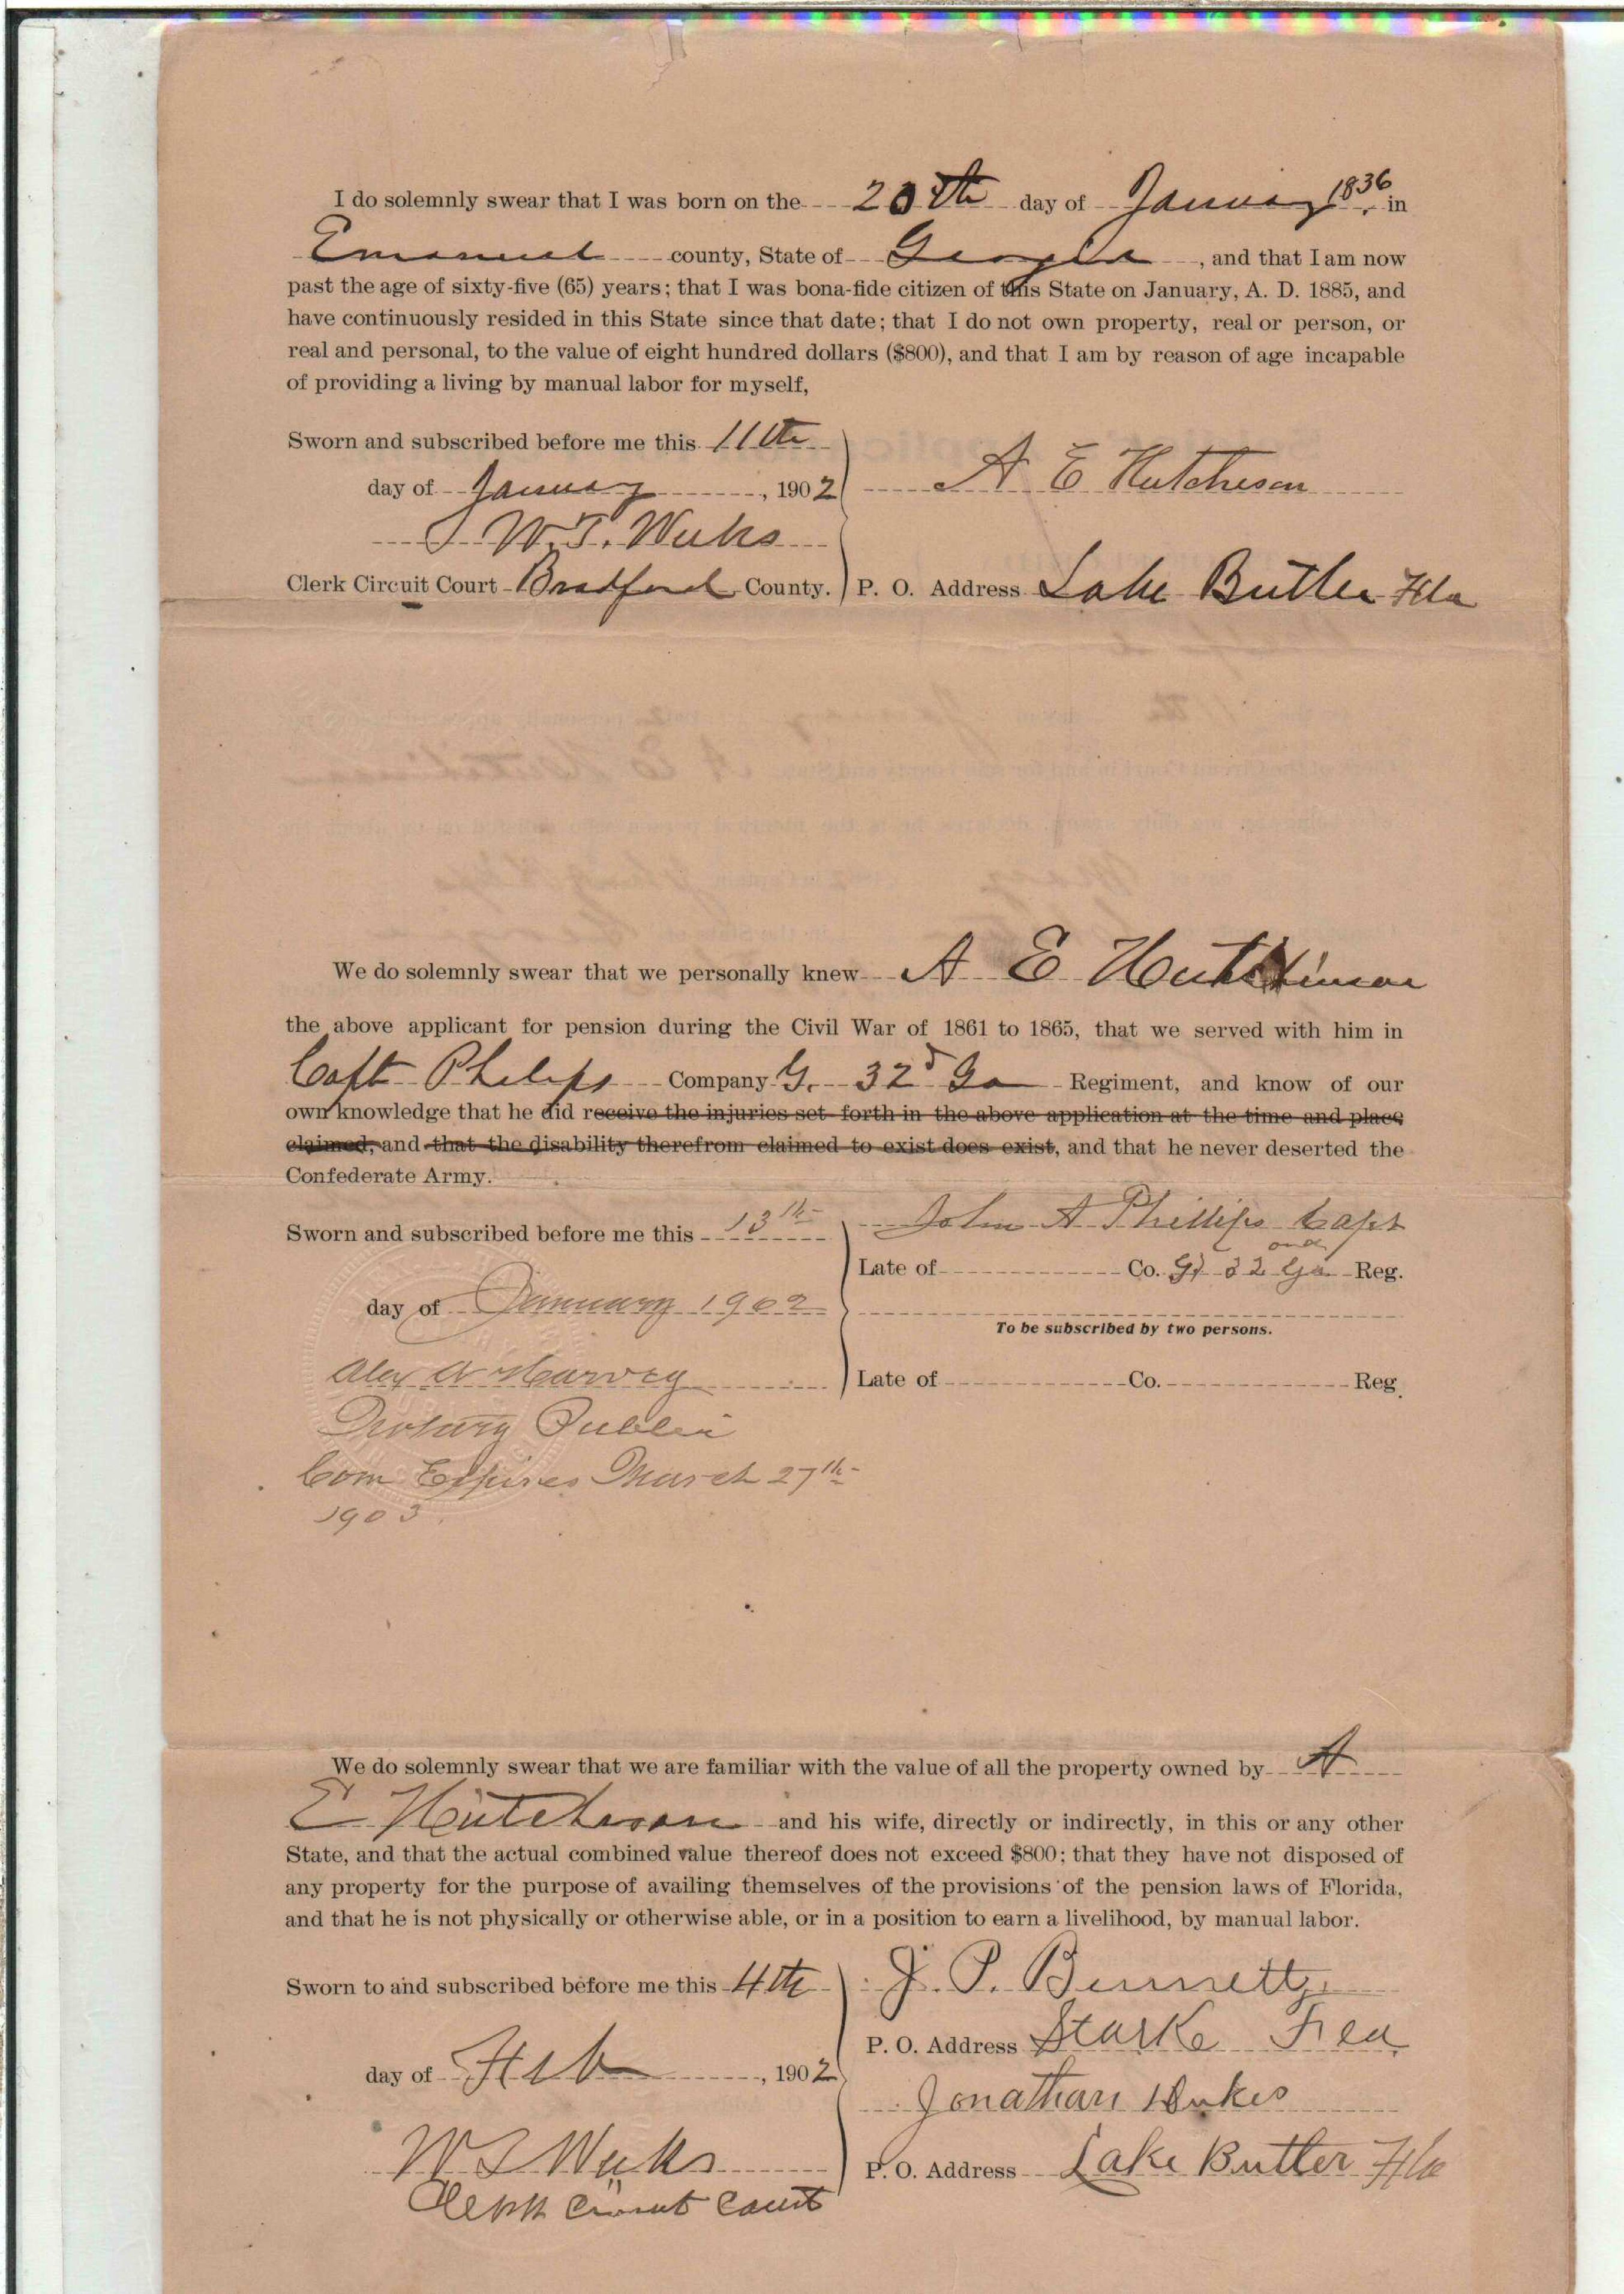 I do solemnly swear that I was born on the 20th day of January 1836, in
Emanuel county, State of Georgia, and that I am now
past the age of sixty-five (65) years; that I was bona-fide citizen of this State on January, A. D. 1885, and
have continuously resided in this State since that date; that I do not own property, real or person, or
real and personal, to the value of eight hundred dollars ($800), and that I am by reason of age incapable
of providing a living by manual labor for myself,
Sworn and subscribed before me this 11th
day of January, 1902 A E Hutcheson
W. T. Weeks
Clerk Circuit Court Bradford County. P. O. Address Lake Butler Fla
We do solemnly swear that we personally knew A E Hutchinson
the above applicant for pension during the Civil War of 1861 to 1865, that we served with him in
Capt Philips Company G. 32d Ga Regiment, and know of our
own knowledge that he did receive the injuries set forth in the above application at the time and place
claimed, and that the disability therefrom claimed to exist does exist, and that he never deserted the
Confederate Army.
Sworn and subscribed before me this 13th John A Phillips Capt
Late of Co. G 32ond Ga Reg.
day of January 1902
To be subscribed by two persons.
Alex W Harvey Late of Co. Reg.
Notary Public
Com Expires March 27th
1903
We do solemnly swear that we are familiar with the value of all the property owned by A
E Hutcheson and his wife, directly or indirectly, in this or any other
State, and that the actual combined value thereof does not exceed $800; that they have not disposed of
any property for the purpose of availing themselves of the provisions of the pension laws of Florida,
and that he is not physically or otherwise able, or in a position to earn a livelihood, by manual labor.
Sworn to and subscribed before me this 4th J. P. Bennett
P. O. Address Starke Flea
day of Feb, 1902
Jonathan Dukes
W T Weeks P. O. Address Lake Butler Fla
Clerk Circuit Court